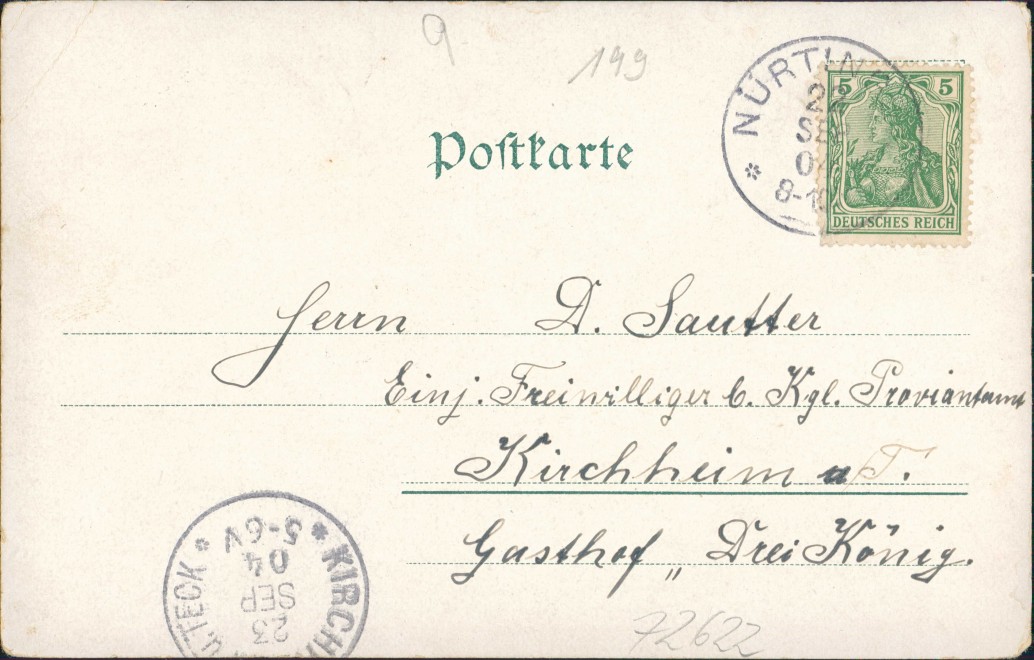 9
199
Postkarte
NÜRTIN
22
SEP
04
8-1
5 5
DEUTSCHES REICH
Herrn D. Sautter
Einj. Freiwilliger b. Kgl. Proviantamt
Kirchheim u. T.
Gasthof „Drei König.
KIRCHH U. TECK
23
SEP
04
5-6V
72622